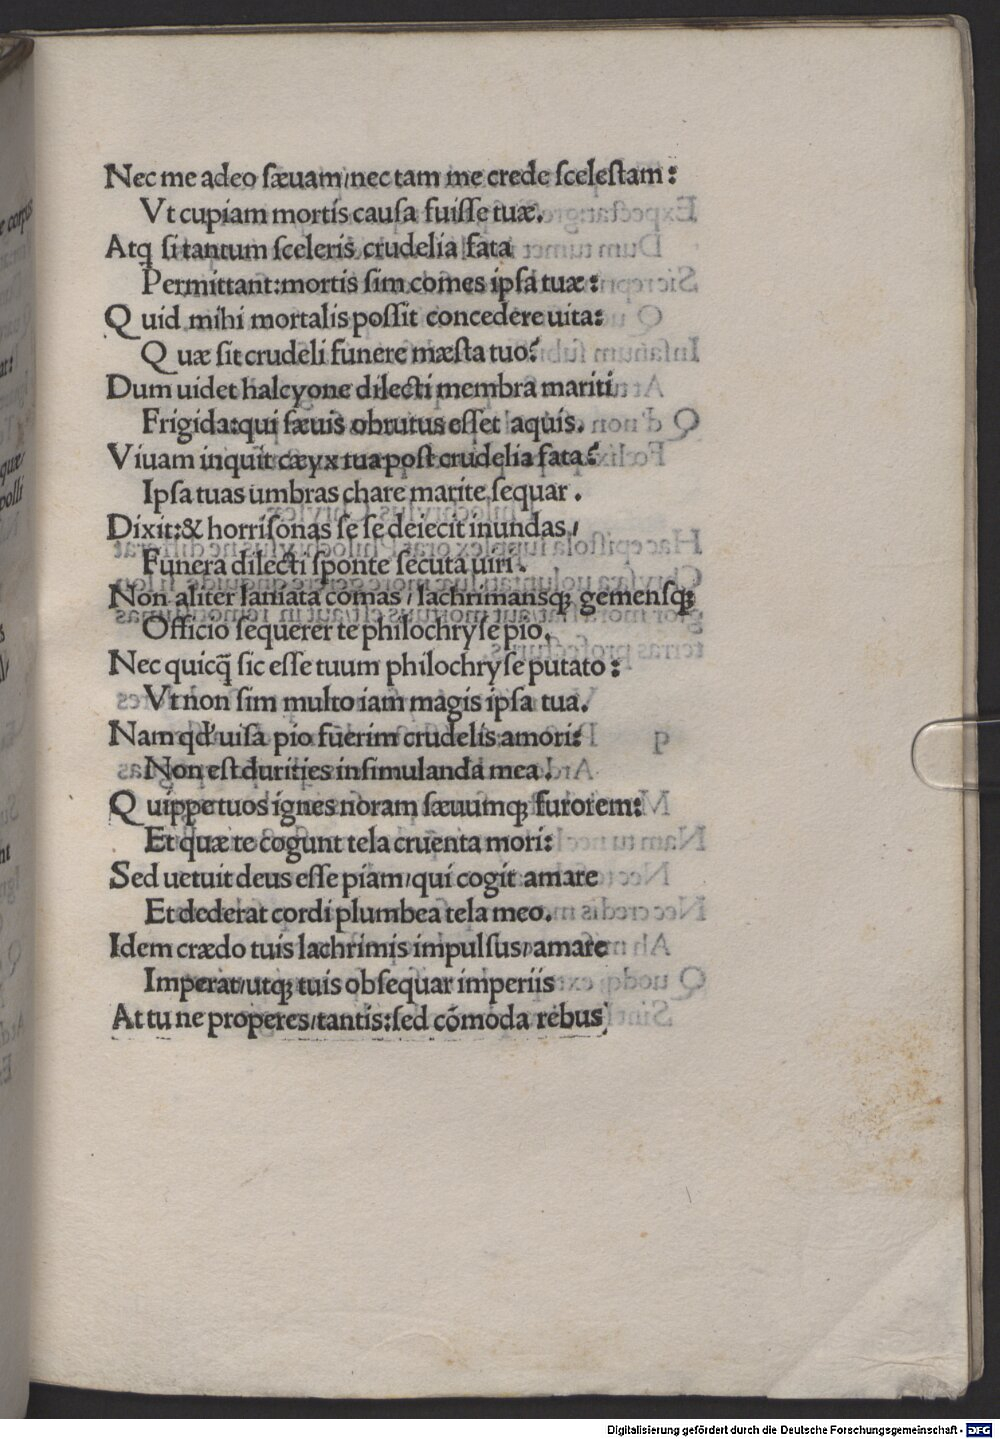 Nec me adeo sæuam/nec tam me crede scelestam:
Vt cupiam mortis causa fuisse tuæ.
Atq̨ si tantum sceleris crudelia fata
Permittant:mortis sim comes ipsa tuæ:
Quid mihi mortalis possit concedere uita:
Quæ sit crudeli funere mæsta tuo?
Dum uidet halcyone dilecti membra mariti
Frigida:qui sæuis obrutus esset aquis.
Viuam inquit cæyx tua post crudelia fata?
Ipsa tuas umbras chare marite sequar.
Dixit:& horrisonas se se deiecit inundas/
Funera dilecti sponte secuta uiri.
Non aliter laniata comas/lachrimansq; gemensq;
Officio sequerer te philochryse pio.
Nec quicq̃ sic esse tuum philochryse putato:
Vt non sim multo iam magis ipsa tua.
Nam qd' uisa pio fuerim crudelis amori:
Non est durities insimulanda mea.
Quippe tuos ignes noram sæuumq; furorem:
Et quæ te cogunt tela cruenta mori:
Sed uetuit deus esse piam/qui cogit amare
Et dederat cordi plumbea tela meo.
Idem crædo tuis lachrimis impulsus/amare
Imperat/utq; tuis obsequar imperiis
At tu ne properes/tantis:sed cōmoda rebus
Digitalisierung gefördert durch die Deutsche Forschungsgemeinschaft - DFG